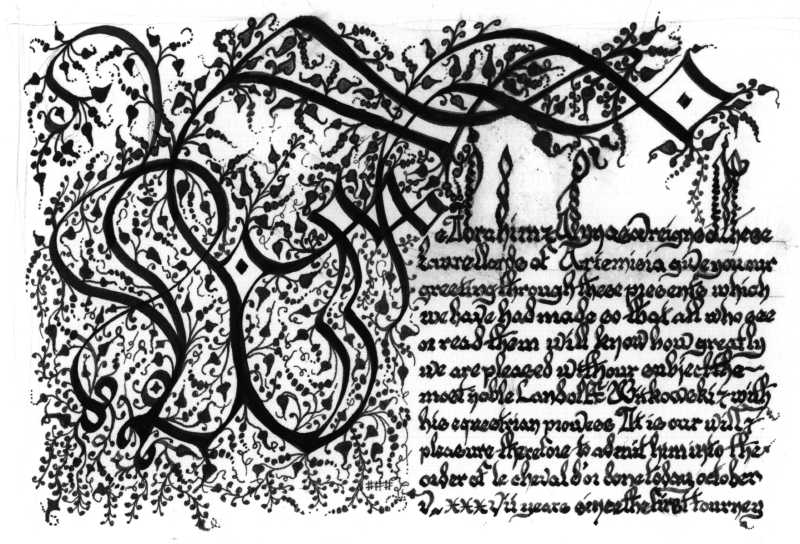 We Abraham & Anna sovereigns of these
Laurellands of Artemisia give you our
greeting through these presents which
we have had made so that all who see
or read them will know how greatly
we are pleased w our subject the
most noble Landolfr Witkowski & with
his equestrian prowess It is our will &
pleasure therefore to admit him into the
order of le cheval d'or done today october
V xxxvii years since the first tourney